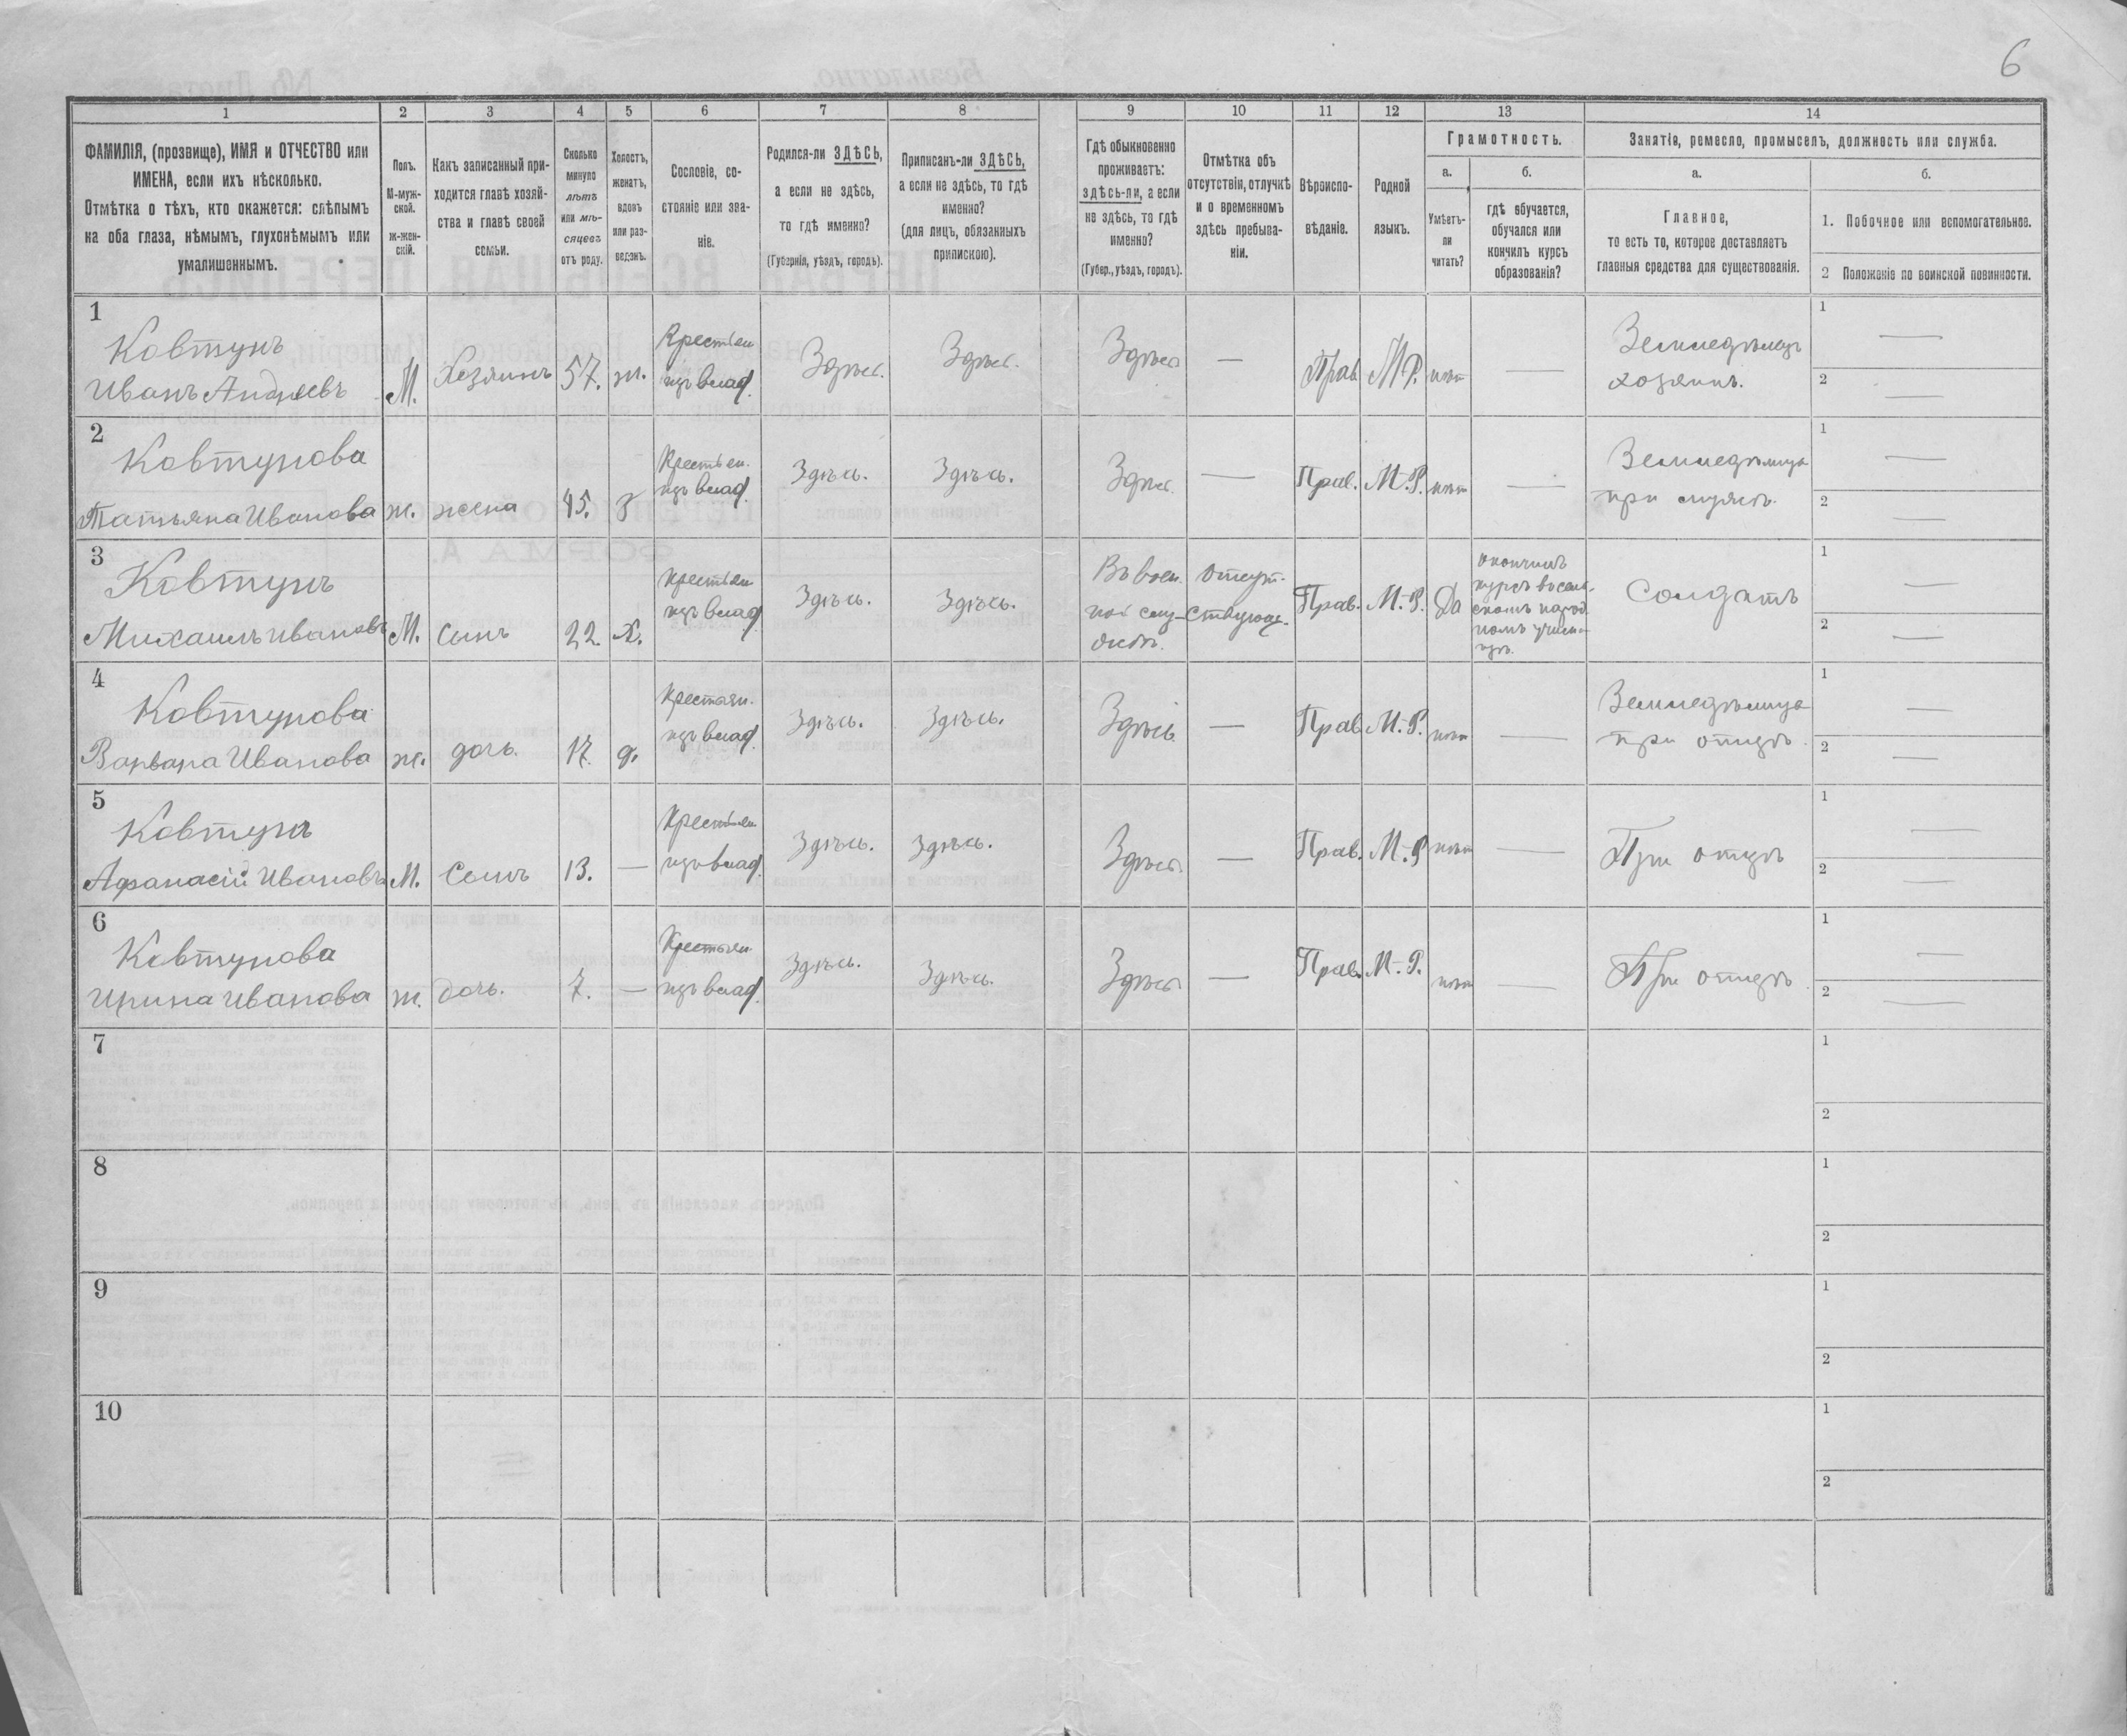 6
1
2
3
4
5
6
7
8
9
10
11
12
13
14
ФАМИЛІЯ, (прозвище), ИМЯ и ОТЧЕСТВО или
ИМЕНА, если ихъ нѣсколько.
Отмѣтка о тѣхъ, кто окажется: слѣпымъ
на оба глаза, нѣмымъ, глухонѣмымъ или
умалишеннымъ.
Полъ.
М-муж-
ской.
ж-жен-
скій.
Какъ записанный при-
ходится главѣ хозяй-
ства и главѣ своей
семьи.
Сколько
минуло
лѣтъ
или мѣ-
сяцевъ
отъ роду.
Холостъ,
женатъ,
вдовъ
или раз-
веденъ.
Сословіе, со-
стояніе или зва-
ніе.
Родился-ли ЗДѢСЬ,
а если не здѣсь,
то гдѣ именно?
(Губернія, уѣздъ, городъ).
Приписанъ-ли ЗДѢСЬ,
а если не здѣсь, то гдѣ
именно?
(для лицъ, обязанныхъ
припискою).
Гдѣ обыкновенно
проживаетъ:
здѣсь-ли, а если
не здѣсь, то гдѣ
именно?
(Губер., уѣздъ, городъ).
Отмѣтка объ
отсутствіи, отлучкѣ
и о временномъ
здѣсь пребыва-
ніи.
Вѣроиспо-
вѣданіе.
Родной
языкъ.
Грамотность.
а.
Умѣетъ-
ли
читать?
б.
гдѣ обучается,
обучался или
кончилъ курсъ
образованія?
Занятія, ремесло, промыселъ, должность или служба.
а.
Главное,
то есть то, которое доставляетъ
главныя средства для существованія.
б.
1. Побочное или вспомогательное.
2 Положеніе по воинской повинности.
1
Ковтунъ
Иванъ Андреевъ
М.
Хозяинъ
57.
ж.
Крестьян
изъ влад.
Здѣсь.
Здѣсь.
Здѣсь
—
Прав
М.Р.
нѣт
—
Земледѣлецъ
хозяинъ.
1 —
2 —
2
Ковтунова
Татьяна Иванова
ж.
жена
45.
з
Крестьян.
изъ влад.
Здѣсь.
Здѣсь.
Здѣсь
—
Прав.
М.Р.
нѣт
—
Земледѣлица
при мужѣ.
1 —
2 —
3
Ковтунъ
Михаилъ Ивановъ
М.
Сынъ
22.
х.
Крестьян
изъ влад.
Здѣсь.
Здѣсь.
Въ воен.
ной слу-
жбѣ.
Отсут-
ствующ.
Прав.
М.Р.
Да
окончилъ
курсъ въ сель-
скомъ народ.
номъ учили-
щѣ.
Солдатъ
1 —
2 —
4
Ковтунова
Варвара Иванова
ж.
дочь.
17.
д.
Крестьян.
изъ влад.
Здѣсь.
Здѣсь.
Здѣсь
—
Прав
М.Р.
нѣт
—
Земледѣлица
при отцѣ.
1 —
2 —
5
Ковтунъ
Афанасій Ивановъ
М.
Сынъ
13.
—
Крестьян
изъ влад.
Здѣсь.
Здѣсь.
Здѣсь
—
Прав.
М.Р
нѣт
—
При отцѣ
1 —
2 —
6
Ковтунова
Ирина Иванова
ж.
дочь.
7.
—
Крестьян.
изъ влад.
Здѣсь.
Здѣсь.
Здѣсь
—
Прав.
М.Р.
нѣт
—
При отцѣ.
1 —
2 —
7
1
2
8
1
2
9
1
2
10
1
2